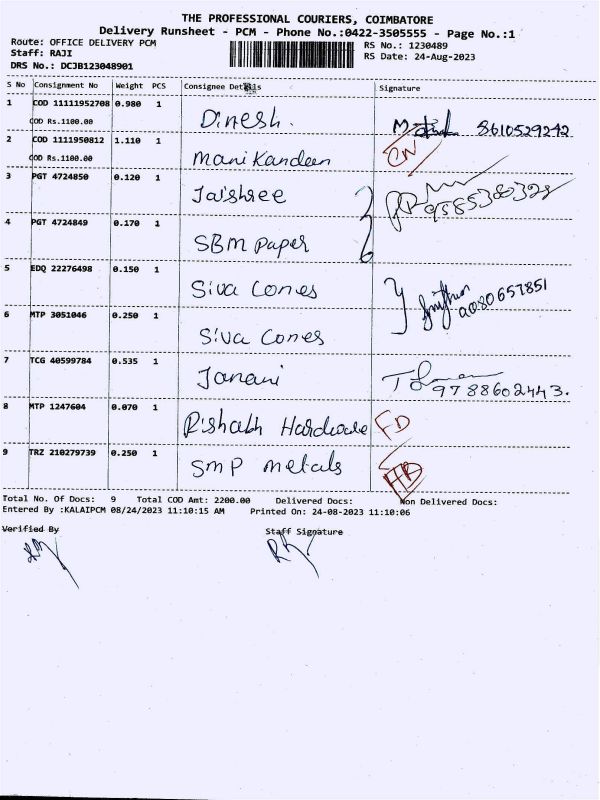 THE PROFESSIONAL COURIERS, COIMBATORE
Delivery Runsheet - PCM - Phone No.:0422-3505555 - Page No.:1
Route: OFFICE DELIVERY PCM
RS No.: 1230489
Staff: RAJI
RS Date: 24-Aug-2023
DRS No.: DCJB123048901
S No Consignment No Weight PCS Consignee Details Signature
1 COD 11111952708 0.980 1 Dinesh. 8610529242
COD Rs.1100.00
2 COD 1111950812 1.110 1 Manikandeen CN
COD Rs.1100.00
3 PGT 4724850 0.120 1 Jaishree
4 PGT 4724849 0.170 1 SBM paper
5 EDQ 22276498 0.150 1 Siva Cones
6 MTP 3051046 0.250 1 Siva Cones
7 TCG 40599784 0.535 1 Janani 9788602443.
8 MTP 1247604 0.070 1 Rishabh Hardware FD
9 TRZ 210279739 0.250 1 SMP metals
Total No. Of Docs: 9 Total COD Amt: 2200.00 Delivered Docs: Non Delivered Docs:
Entered By :KALAIPCM 08/24/2023 11:10:15 AM Printed On: 24-08-2023 11:10:06
Verified By Staff Signature